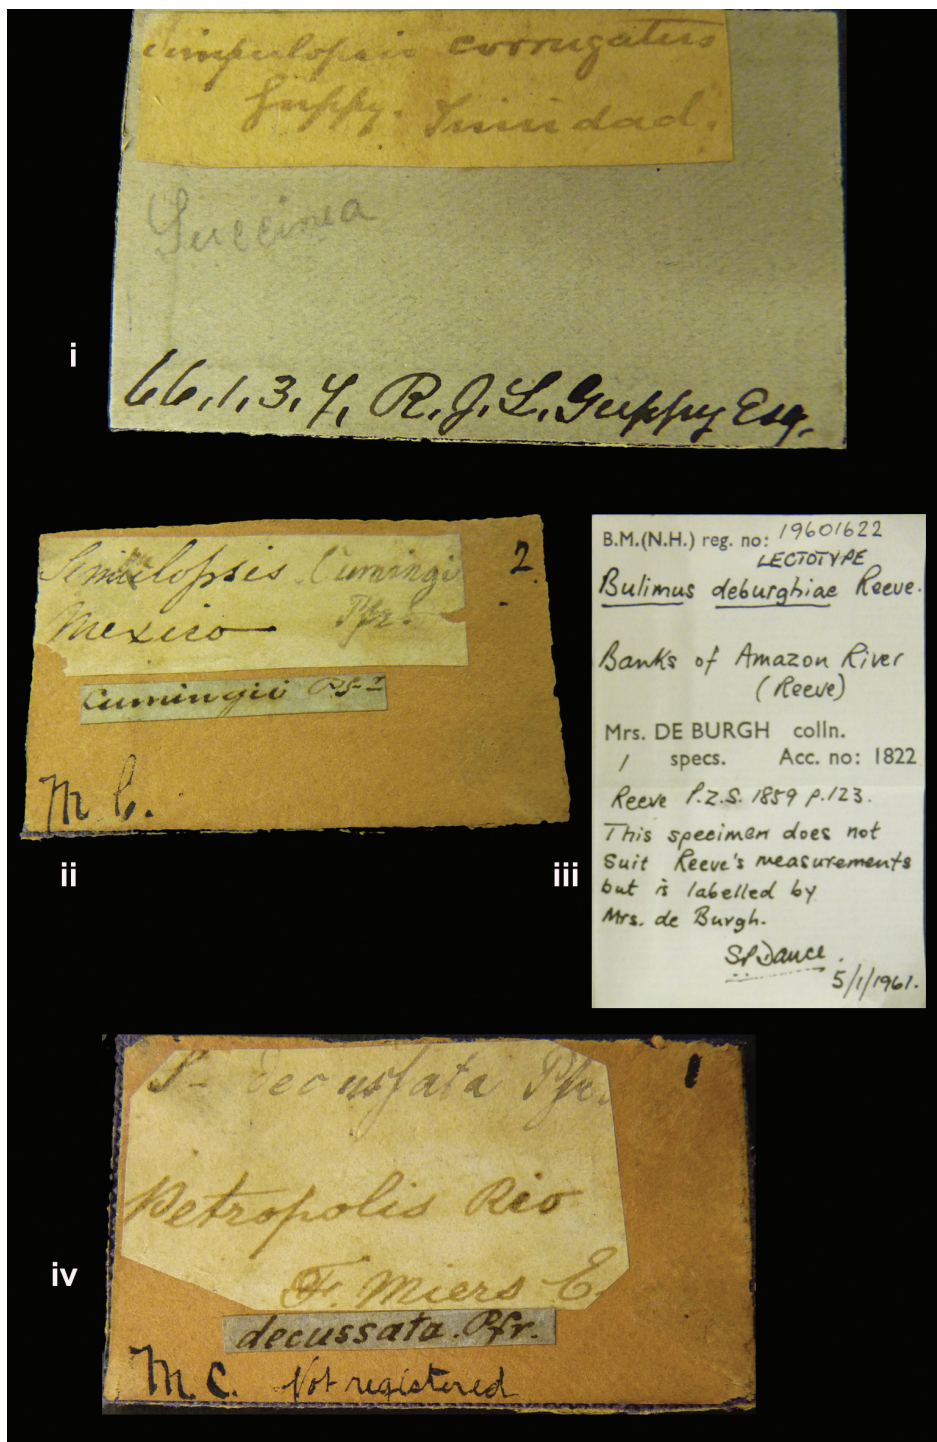 Simpulopsis corrugatus
Guppy. Trinidad.
Succinea
i
66,1,3,7, R.J.L. Guppy Esq.
Simpulopsis Cumingi
Pfr.
Mexico
2.
Cumingii Pfr
M C.
ii
B.M.(N.H.) reg. no: 19601622
LECTOTYPE
Bulimus deburghiae Reeve.
Banks of Amazon River
(Reeve)
Mrs. DE BURGH colln.
1 specs. Acc. no: 1822
Reeve P.Z.S. 1859 p.123.
This specimen does not
suit Reeve's measurements
but is labelled by
Mrs. de Burgh.
S.P. Dance.
5/1/1961.
iii
S- decussata Pfr.
1
Petropolis Rio
F. Miers E.
decussata. Pfr.
M.C. Not registered
iv